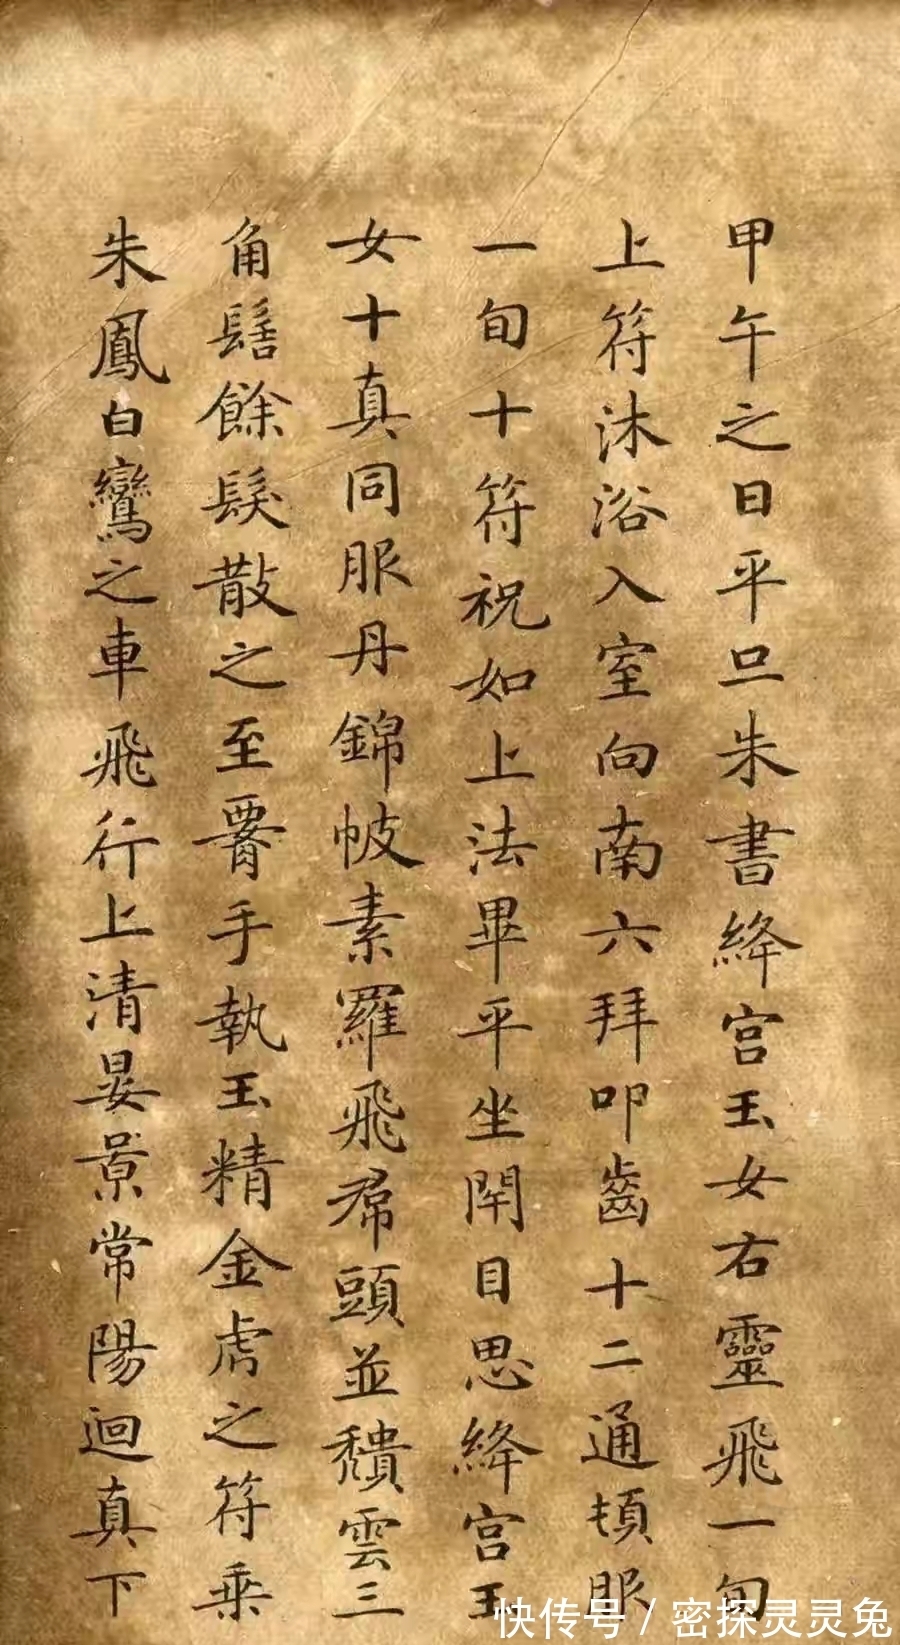 甲午之日平旦朱書絳宮玉女右靈飛一旬
上符沐浴入室向南六拜叩齒十二通頓服
一旬十符祝如上法畢平坐閉目思絳宮玉
女十真同服丹錦帔素羅飛帬頭並穨雲三
角髻餘髮散之至署手執玉精金虎之符乗
朱鳳白鸞之車飛行上清晏景常陽迴真下
快传号 / 密探灵灵兔